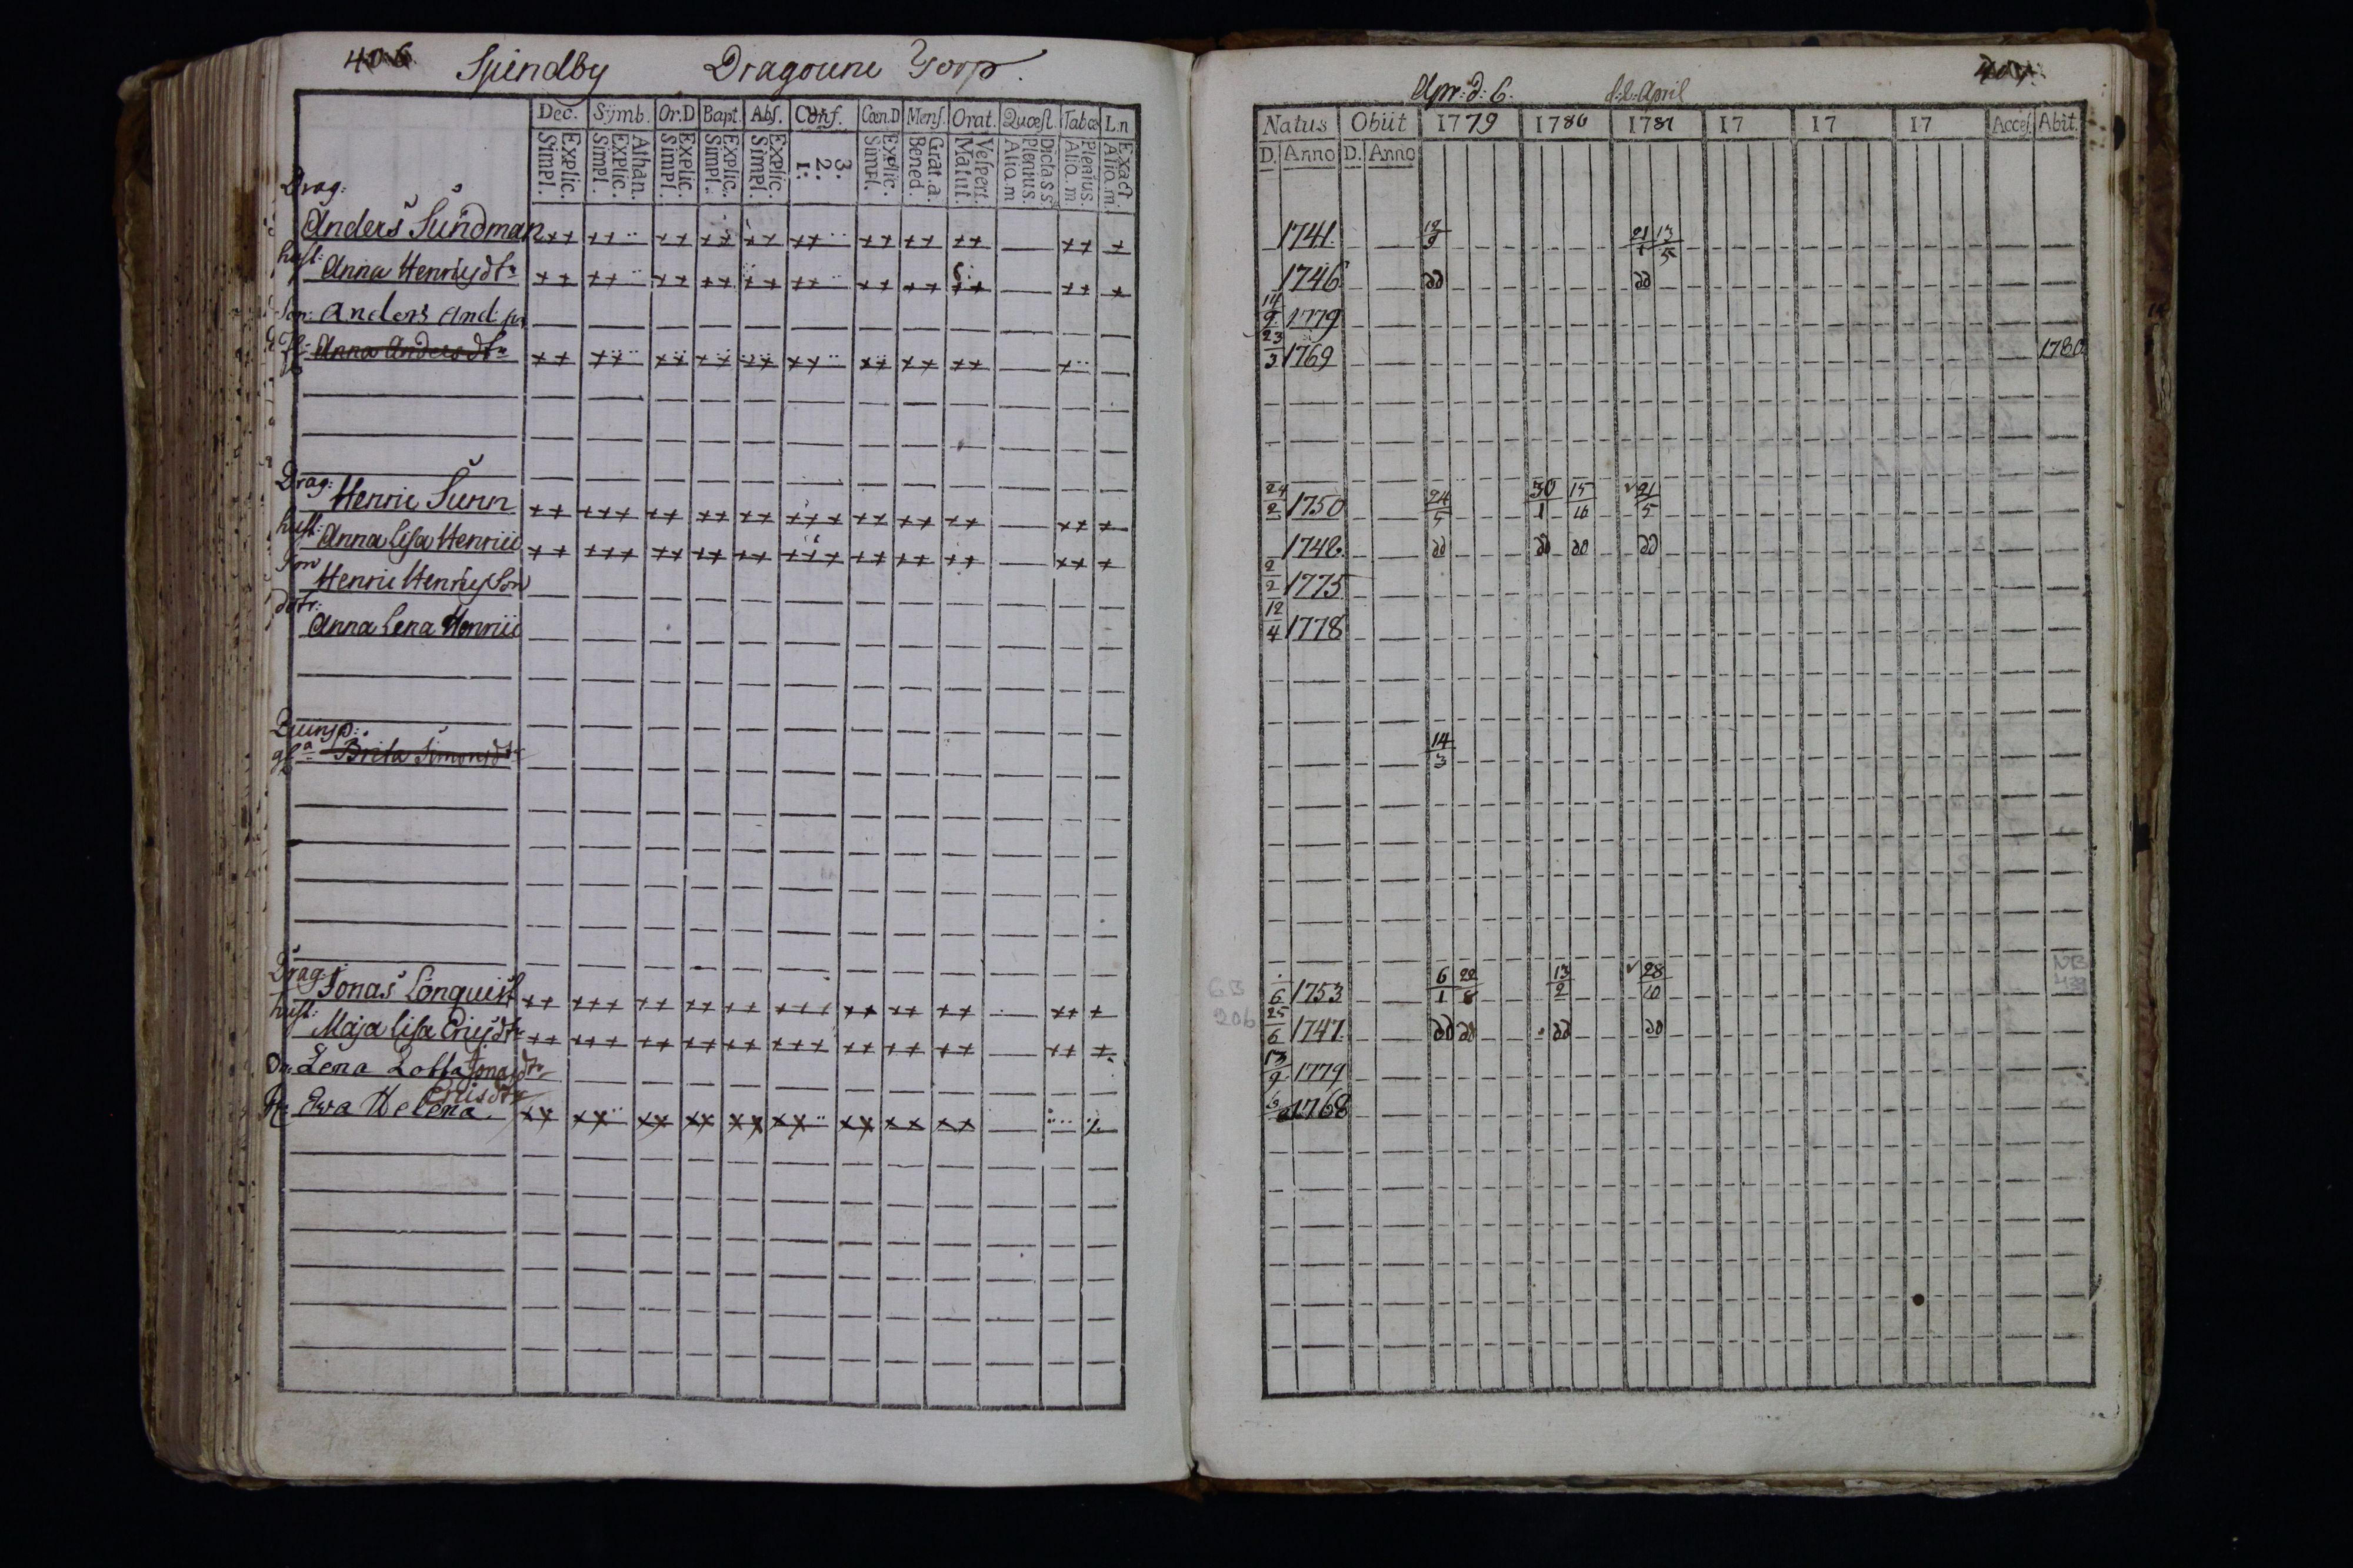 406 Spindby Dragoune Torp.
Dec. Symb. Or.D Bapt. Abs. Conf. Cœn.D Mens. Orat. Quæst. Tab.œ L.n
Explic. Simpl. Athan. Explic. Simpl. Explic. Simpl. Explic. Simpl. Explic. Simpl. 3. 2. 1. Explic. Simpl. Grat.a. Bened. Vespert. Matut. Dictass. Plenius. Alio.m Plenius. Alio.m Exact Alio.m.
Drag:
Anders Sundman ++ ++ ++ ++ ++ ++ ++ ++ ++ ++ +
hust:
Anna Henrićsdtr ++ ++ ++ ++ ++ ++ ++ ++ ++ ++ +
Son: Anders And:
Anna Andersdtr ++ ++ ++ ++ ++ ++ ++ ++ ++ +
Drag:
Henric Sunn ++ +++ ++ ++ ++ +++ ++ ++ ++ ++ +
hust: Anna Lisa Henric ++ +++ ++ ++ ++ +++ ++ ++ ++ ++ +
Son
Henric Henricson
dotr:
Anna Lena Henric
Brita Simonsdtr
Drag:
Jonas Lonquist ++ +++ ++ ++ ++ +++ ++ ++ ++ ++ +
hust:
Maja Lisa Ericsdtr ++ +++ ++ ++ ++ +++ ++ ++ ++ ++ +
Dr: Lena Lotta Jonasdtr
Ericsdtr
Ewa Helena ++ ++ ++ ++ ++ ++ ++ ++ ++
Apr: d: 6. d. 2. April
Natus Obiit 1779 1780 1781 17 17 17 Acces. Abit.
D. Anno D. Anno
1741. 21/1 13/5
1746 dd dd
14/9 1779
23/3 1769 1780
24/2 1750 24/5 30/1 15/10 21/5
1748. dd dd dd dd
2/2 1775
12/4 1778
14/3
NB
6 1753 6/1 22/8 13/2 28/10
206 25/6 1747. dd dd dd dd
13/9 1779
1768